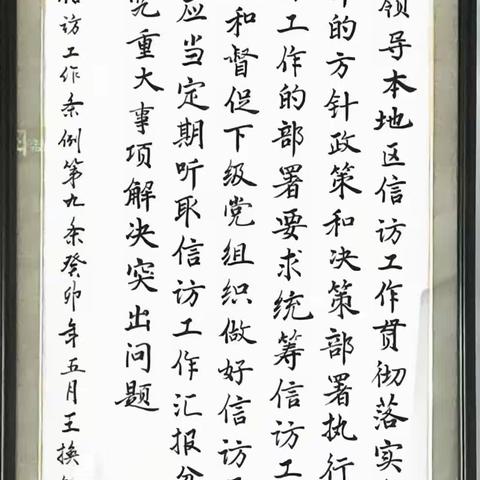 领导本地区信访工作贯彻落实
的方针政策和决策部署执行
工作的部署要求统筹信访工
和督促下级党组织做好信访
应当定期听取信访工作汇报分
究重大事项解决突出问题
信访工作条例第九条癸卯年五月王换